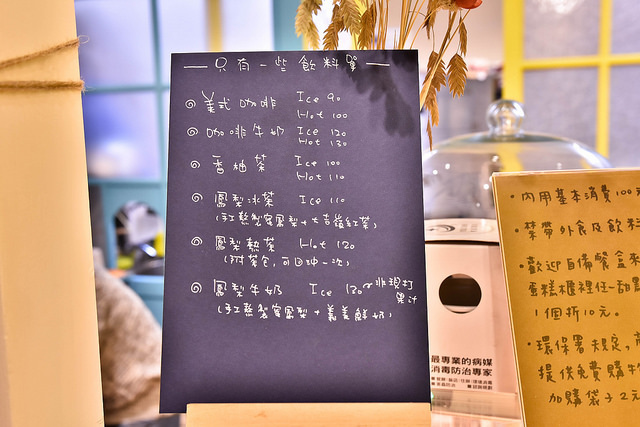 — 只有一些飲料單 —
◎ 美式咖啡 Ice 90
Hot 100
◎ 咖啡牛奶 Ice 120
Hot 130
◎ 香柚茶 Ice 100
Hot 110
◎ 鳳梨冰茶 Ice 110
(手工熬製蜜鳳梨+大吉嶺紅茶)
◎ 鳳梨熱茶 Hot 120
(附茶包,可回沖一次)
◎ 鳳梨牛奶 Ice 130 非現打果汁
(手工熬製蜜鳳梨+義美鮮奶)
最專業的病媒
消毒防治專家
•內用基本消費100
•禁帶外食及飲料
•歡迎自備餐盒來
蛋糕櫃裡任一甜
1個折10元。
•環保署規定,
提供免費購
加購袋子2元